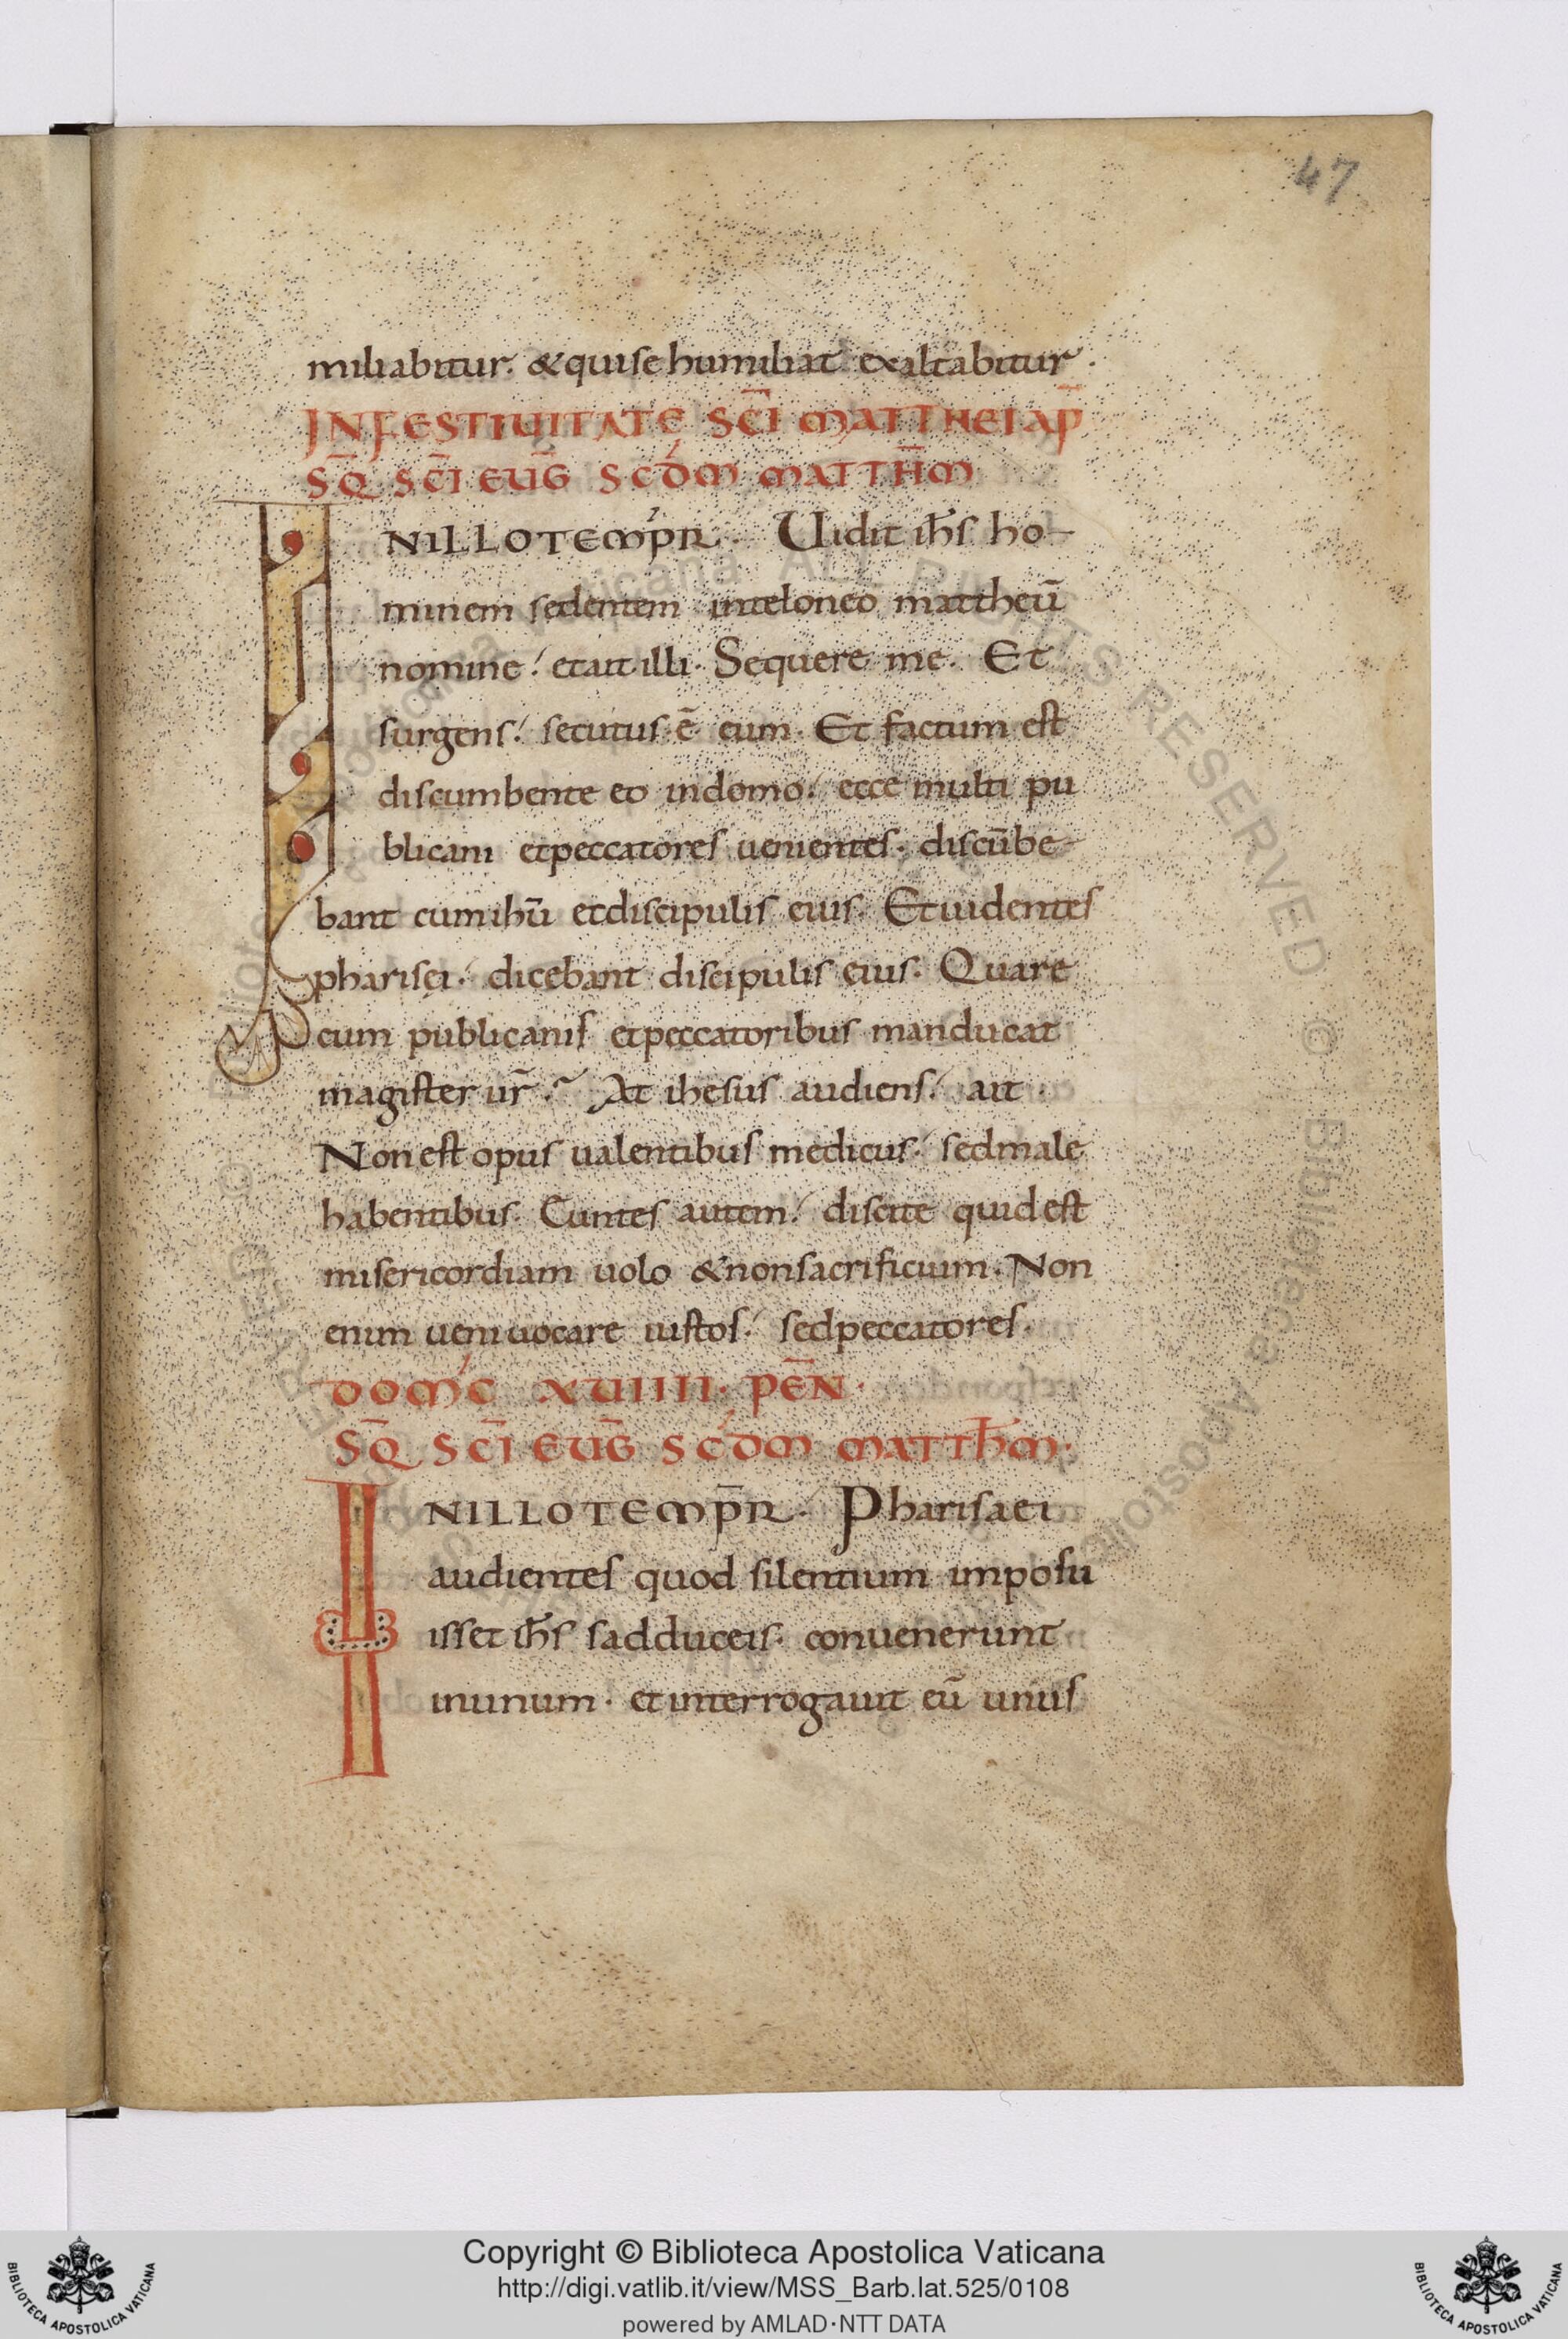 47
miliabitur. &quisehumiliat exaltabitur.
INFESTIUITATE SC̄I MATTHEI AP̄
SQ̄ SC̄I EUḠ SCDM MATTH̄M
INILLOTEMPR. Uidit ih̄s ho-
minem sedentem inteloneo mattheū
nomine. etait illi. Sequere me. Et
surgens. secutus ē eum. Et factum est
discumbente eo indomo. ecce multi pu
blicani etpeccatores uenientes. discūbe-
bant cumihū etdiscipulis eius. Etuidentes
pharisei. dicebant discipulis eius. Quare
cum publicanis etpeccatoribus manducat
magister ur̄. At ihesus audiens. ait.
Nonest opus ualentibus medicus. sedmale
habentibus. Euntes autem. discite quidest
misericordiam uolo &nonsacrificium. Non
enim ueniuocare iustos. sedpeccatores.
DOMC XUIIII. PEN̄.
SQ̄ SC̄I EUḠ SCDM MATTH̄M.
INILLOTEMP̄R. Pharisaei
audientes quod silentium imposu
isset ih̄s sadduceis. conuenerunt
inunum. etinterrogauit eū unus
Copyright © Biblioteca Apostolica Vaticana
http://digi.vatlib.it/view/MSS_Barb.lat.525/0108
powered by AMLAD·NTT DATA
BIBLIOTECA APOSTOLICA VATICANA
BIBLIOTECA APOSTOLICA VATICANA